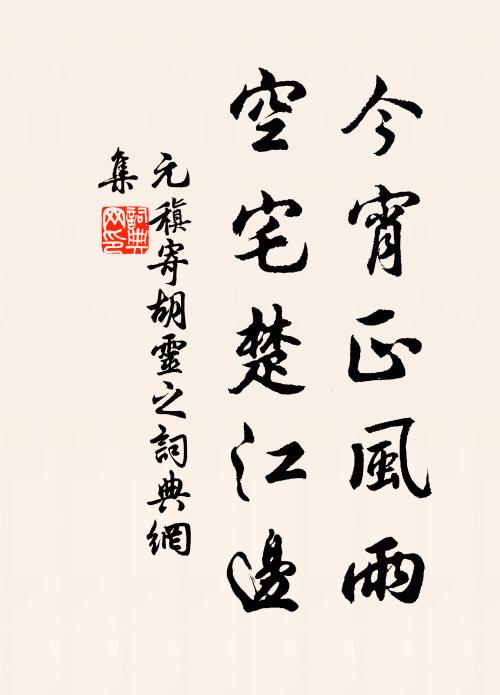 今宵正風雨
空宅楚江邊
元稹寄胡靈之詞典網
集
詞典网印